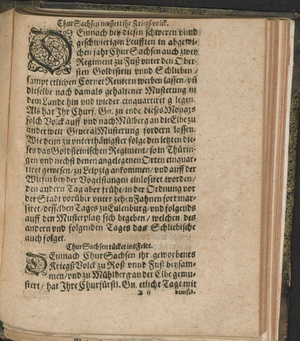 Chur Sachsen mustert ihr Kriegßvolck.
DEmnach bey diesen schweren vnnd
geschwierigen Leufften in abgewi-
chen jahr Chur Sachsen auch zwey
Regiment zu Fuß vnter den Ober-
sten Goldstein vnnd Schlieben /
sampt etlichen Cornet Reutern werben lassen / vn
dieselbe nach damals gehaltener Musterung in
dem Lande hin vnd wieder einquartiret gelegen.
Als hat Ihr Churf. Gn. zu ende dieses Monats
solch Volck auff vnd nach Mülberg an die Elbe zu
anderweit General Musterung fordern lassen.
Wie denn zu vnterthänigster folge den letzten die-
ses das Goldsteinischen Regiment / so in Thürin-
gen vnd nechst denen angelegenen Orten einquar-
tiret gewesen / zu Leipzig ankommen / vnd auff der
Wiesen bey der Vogelstangen einlosiret worden /
den andern Tag aber frühe / in der Ordnung vor
der Stadt vorüber vnter zehen Fahnen fort mar-
siret / desselben Tages zu Eulenburg / vnd folgends
auff den Musterplatz sich begeben / welchen des
andern vnd folgenden Tages das Schliebische
auch folget.
Chur Sachsen rücket ins Feldt.
DEnnach Chur Sachsen ihr geworbenes
Kriegß Volck zu Roß vnnd Fuß beysam-
men / vnd zu Mühlberg an der Elbe gemu-
stert / hat Ihre Churfürstl. Gn. etliche Tage mit